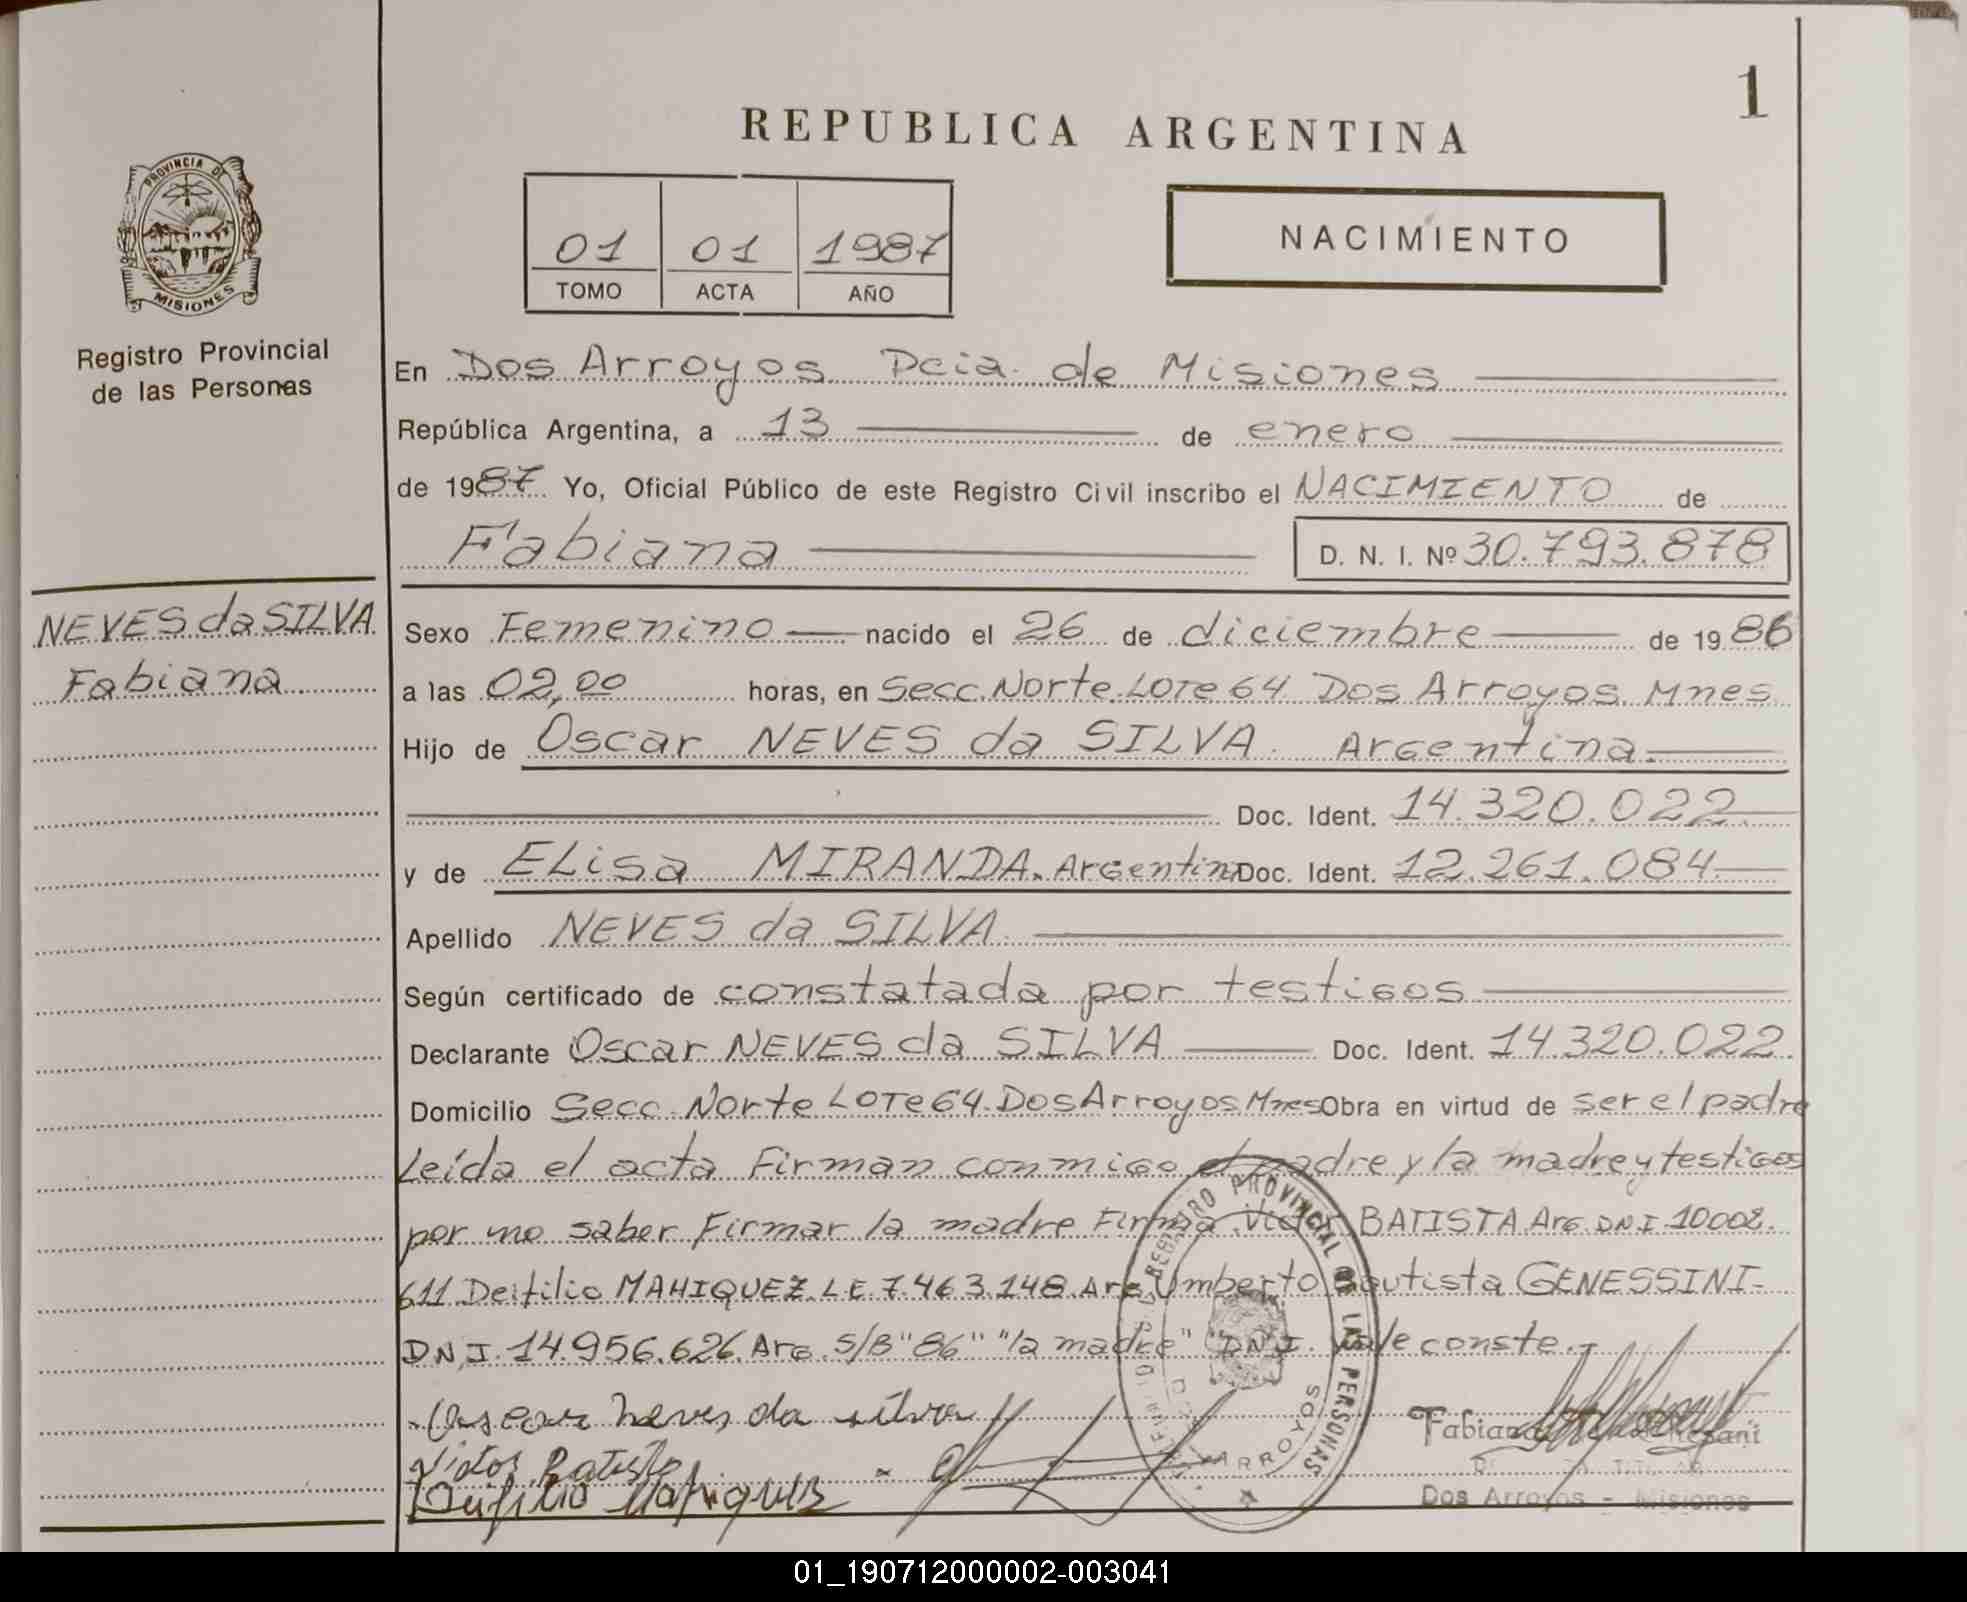 1
REPUBLICA ARGENTINA
PROVINCIA DE
MISIONES
Registro Provincial
de las Personas
01 01 1987
TOMO ACTA AÑO
NACIMIENTO
En Dos Arroyos Pcia. de Misiones
República Argentina, a 13 de enero
de 1987. Yo, Oficial Público de este Registro Civil inscribo el NACIMIENTO de
Fabiana D. N. I. Nº 30.793.878
NEVES da SILVA
Fabiana
Sexo Femenino nacido el 26 de diciembre de 1986
a las 02,00 horas, en Secc. Norte Lote 64 Dos Arroyos Mnes
Hijo de Oscar NEVES da SILVA. Argentina.
Doc. Ident. 14.320.022
y de Elisa MIRANDA. Argentina Doc. Ident. 12.261.084
Apellido NEVES da SILVA
Según certificado de constatada por testigos
Declarante Oscar NEVES da SILVA Doc. Ident. 14.320.022.
Domicilio Secc. Norte Lote 64. Dos Arroyos Mnes Obra en virtud de ser el padre
Leída el acta Firman conmigo el padre y la madre y testigos
por no saber Firmar la madre Firma BATISTA Arg. D.N.I. 10002.
611 MAHIQUEZ L.E. 7.463.148 Arg Umberto Bautista GENESSINI-
D.N.I. 14.956.626. Arg. S/B "86" "la madre" "D.N.I. vale conste.-
Oscar neves da silva
Batista
REGISTRO PROVINCIAL DE LAS PERSONAS
ARROYOS
Fabiana
Dos Arroyos - Misiones
01_190712000002-003041